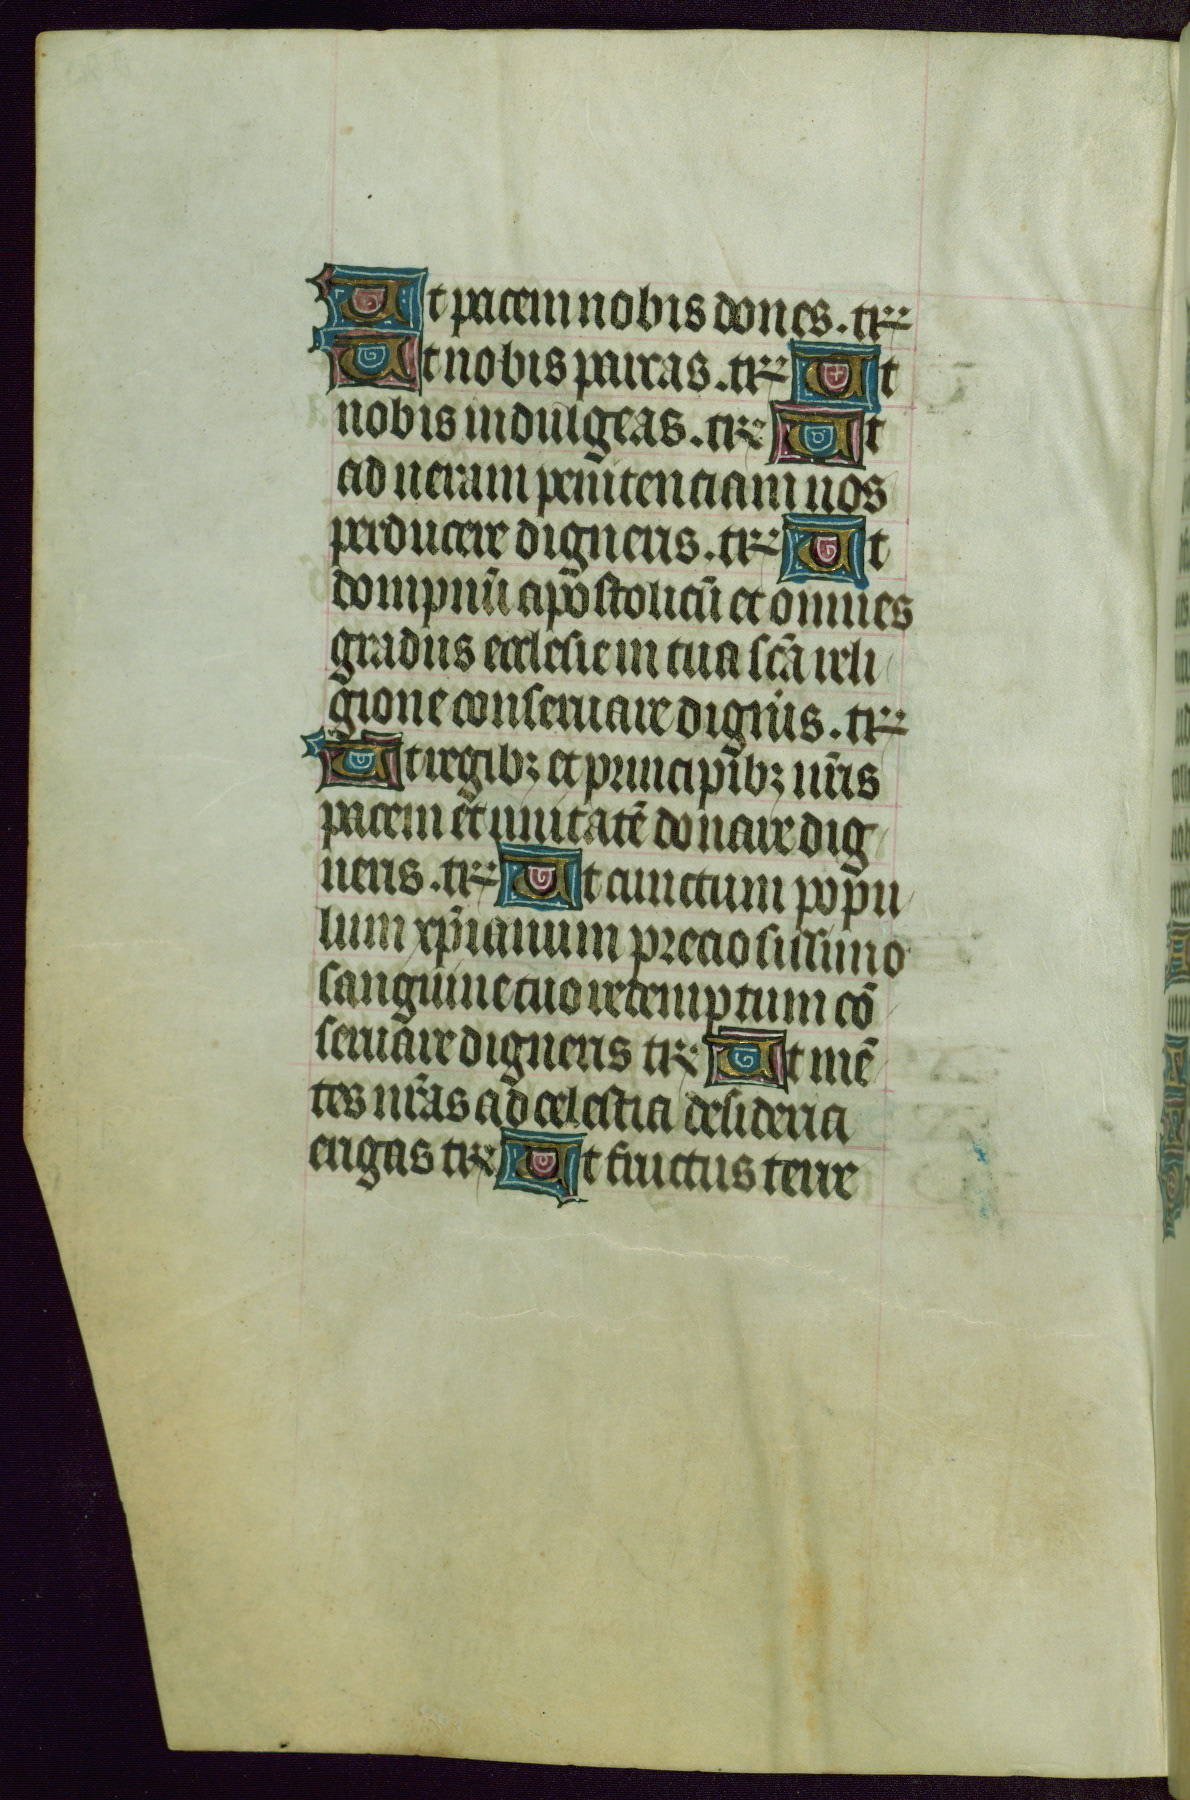 Ut pacem nobis dones. tr
Ut nobis parcas. tr Ut
nobis indulgeas. tr Ut
ad ueram penitenciam nos
perducere digneris. tr Ut
dompnū apostolicū et omnes
gradus ecclesie in tua scā reli
gione conseruare digris. tr
Ut regibꝫ et principibꝫ nr̄is
pacem et unitatē donare dig
neris. tr Ut cunctum popu
lum xp̄ianum preciosissimo
sanguine tuo redemptum cō
seruare digneris tr Ut mē
tes nr̄as ad celestia desideria
erigas tr Ut fructus terre